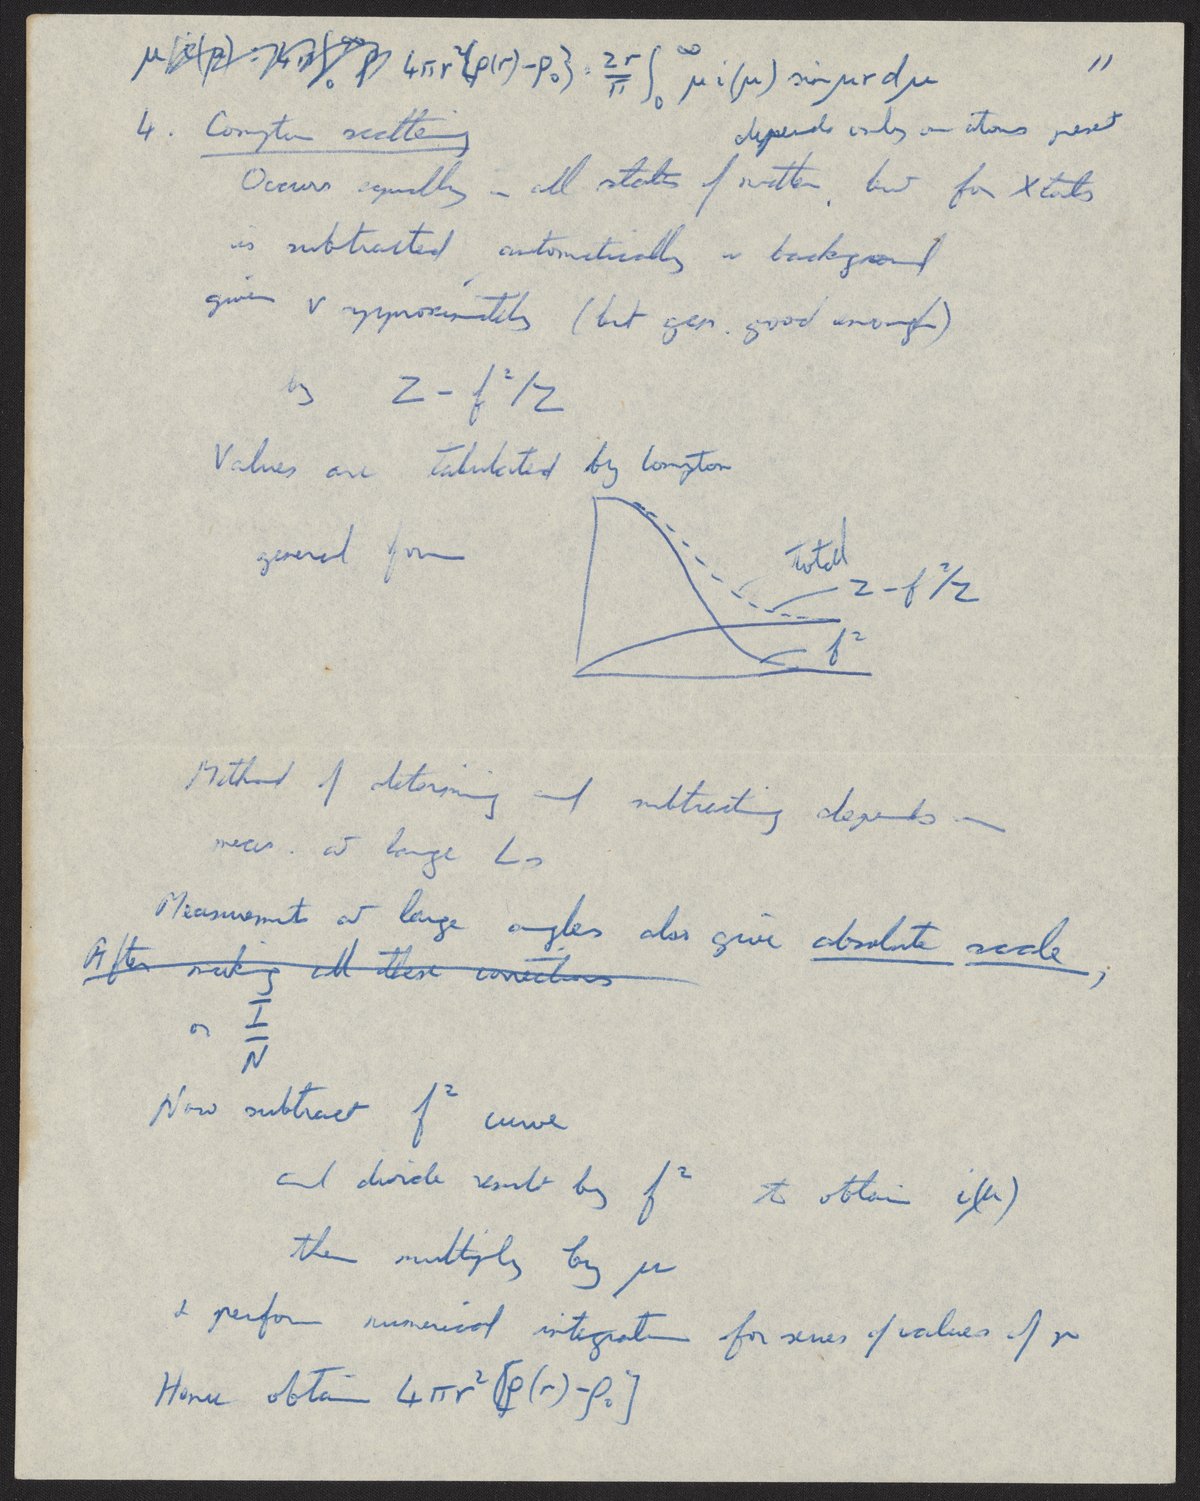 4πr²{ρ(r)-ρ₀} = 2r/π ∫₀^∞ μ i(μ) sin μr dμ
"
4. Compton scattering
depends only on atoms present
Occurs equally in all states of matter, but for Xtals
is subtracted automatically in background
given v approximately (but gen. good enough)
by Z - f²/Z
Values are tabulated by Compton
general form
Total
Z - f²/Z
f²
Method of determining and subtracting depends on
meas. at large ∠s
Measurements at large angles also give absolute scale,
After making all these corrections
or I/N
Now subtract f² curve
and divide result by f² to obtain i(μ)
then multiply by μ
+ perform numerical integration for series of values of r
Hence obtain 4πr² [ρ(r)-ρ₀]